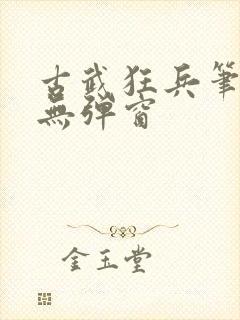 古武狂兵筆
無彈窗
金玉堂